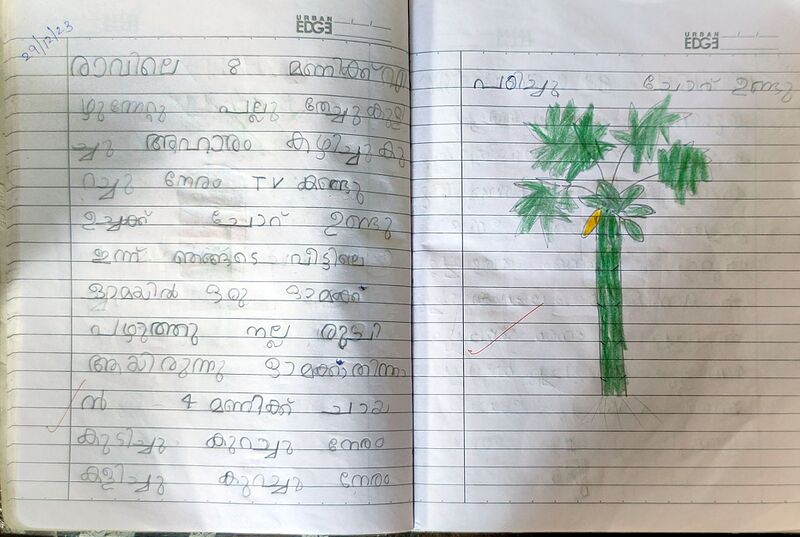 URBAN
EDGE
29/12/23
രാവിലെ 8 മണിക്ക് എ
ഴുന്നേറ്റു പല്ലു തേച്ചു കുളി
ച്ചു ആഹാരം കഴിച്ചു കു
റച്ചു നേരം TV കണ്ടു
ഉച്ചക്ക് ചോറ് ഉണ്ടു
ഇന്ന് ഞങ്ങടെ വീട്ടിലെ
ഒരു
പഴുത്തു നല്ല രുചി
ആയിരുന്നു തിന്നാ
ൻ 4 മണിക്ക് ചായ
കുടിച്ചു കുറച്ചു നേരം
കളിച്ചു കുറച്ചു നേരം
URBAN
EDGE
പഠിച്ചു ചോറ് ഉണ്ടു